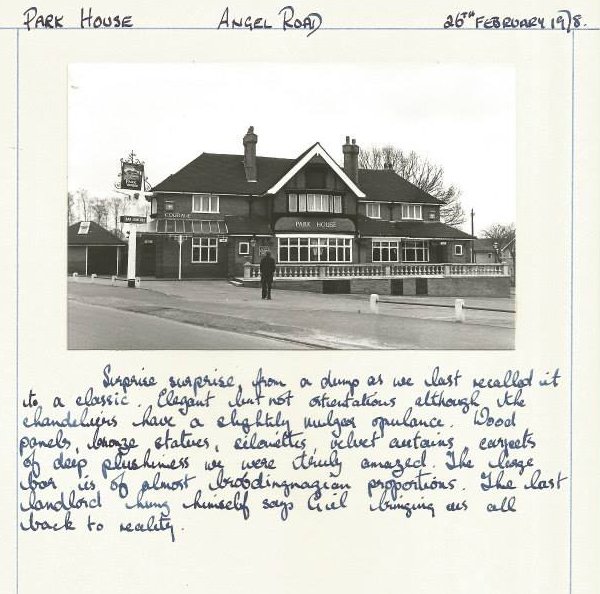 PARK HOUSE ANGEL ROAD 26TH FEBRUARY 1978.
COURAGE
PARK HOUSE
Surprise surprise, from a dump as we last recalled it
to a classic. Elegant but not ostentatious although the
chandeliers have a slightly vulgar opulance. Wood
panels, bronze statues, silouettes, velvet curtains, carpets
of deep plushiness we were truly amazed. The large
bar is of almost brobdingnagian proportions. The last
landlord hung himself says Giel bringing us all
back to reality.